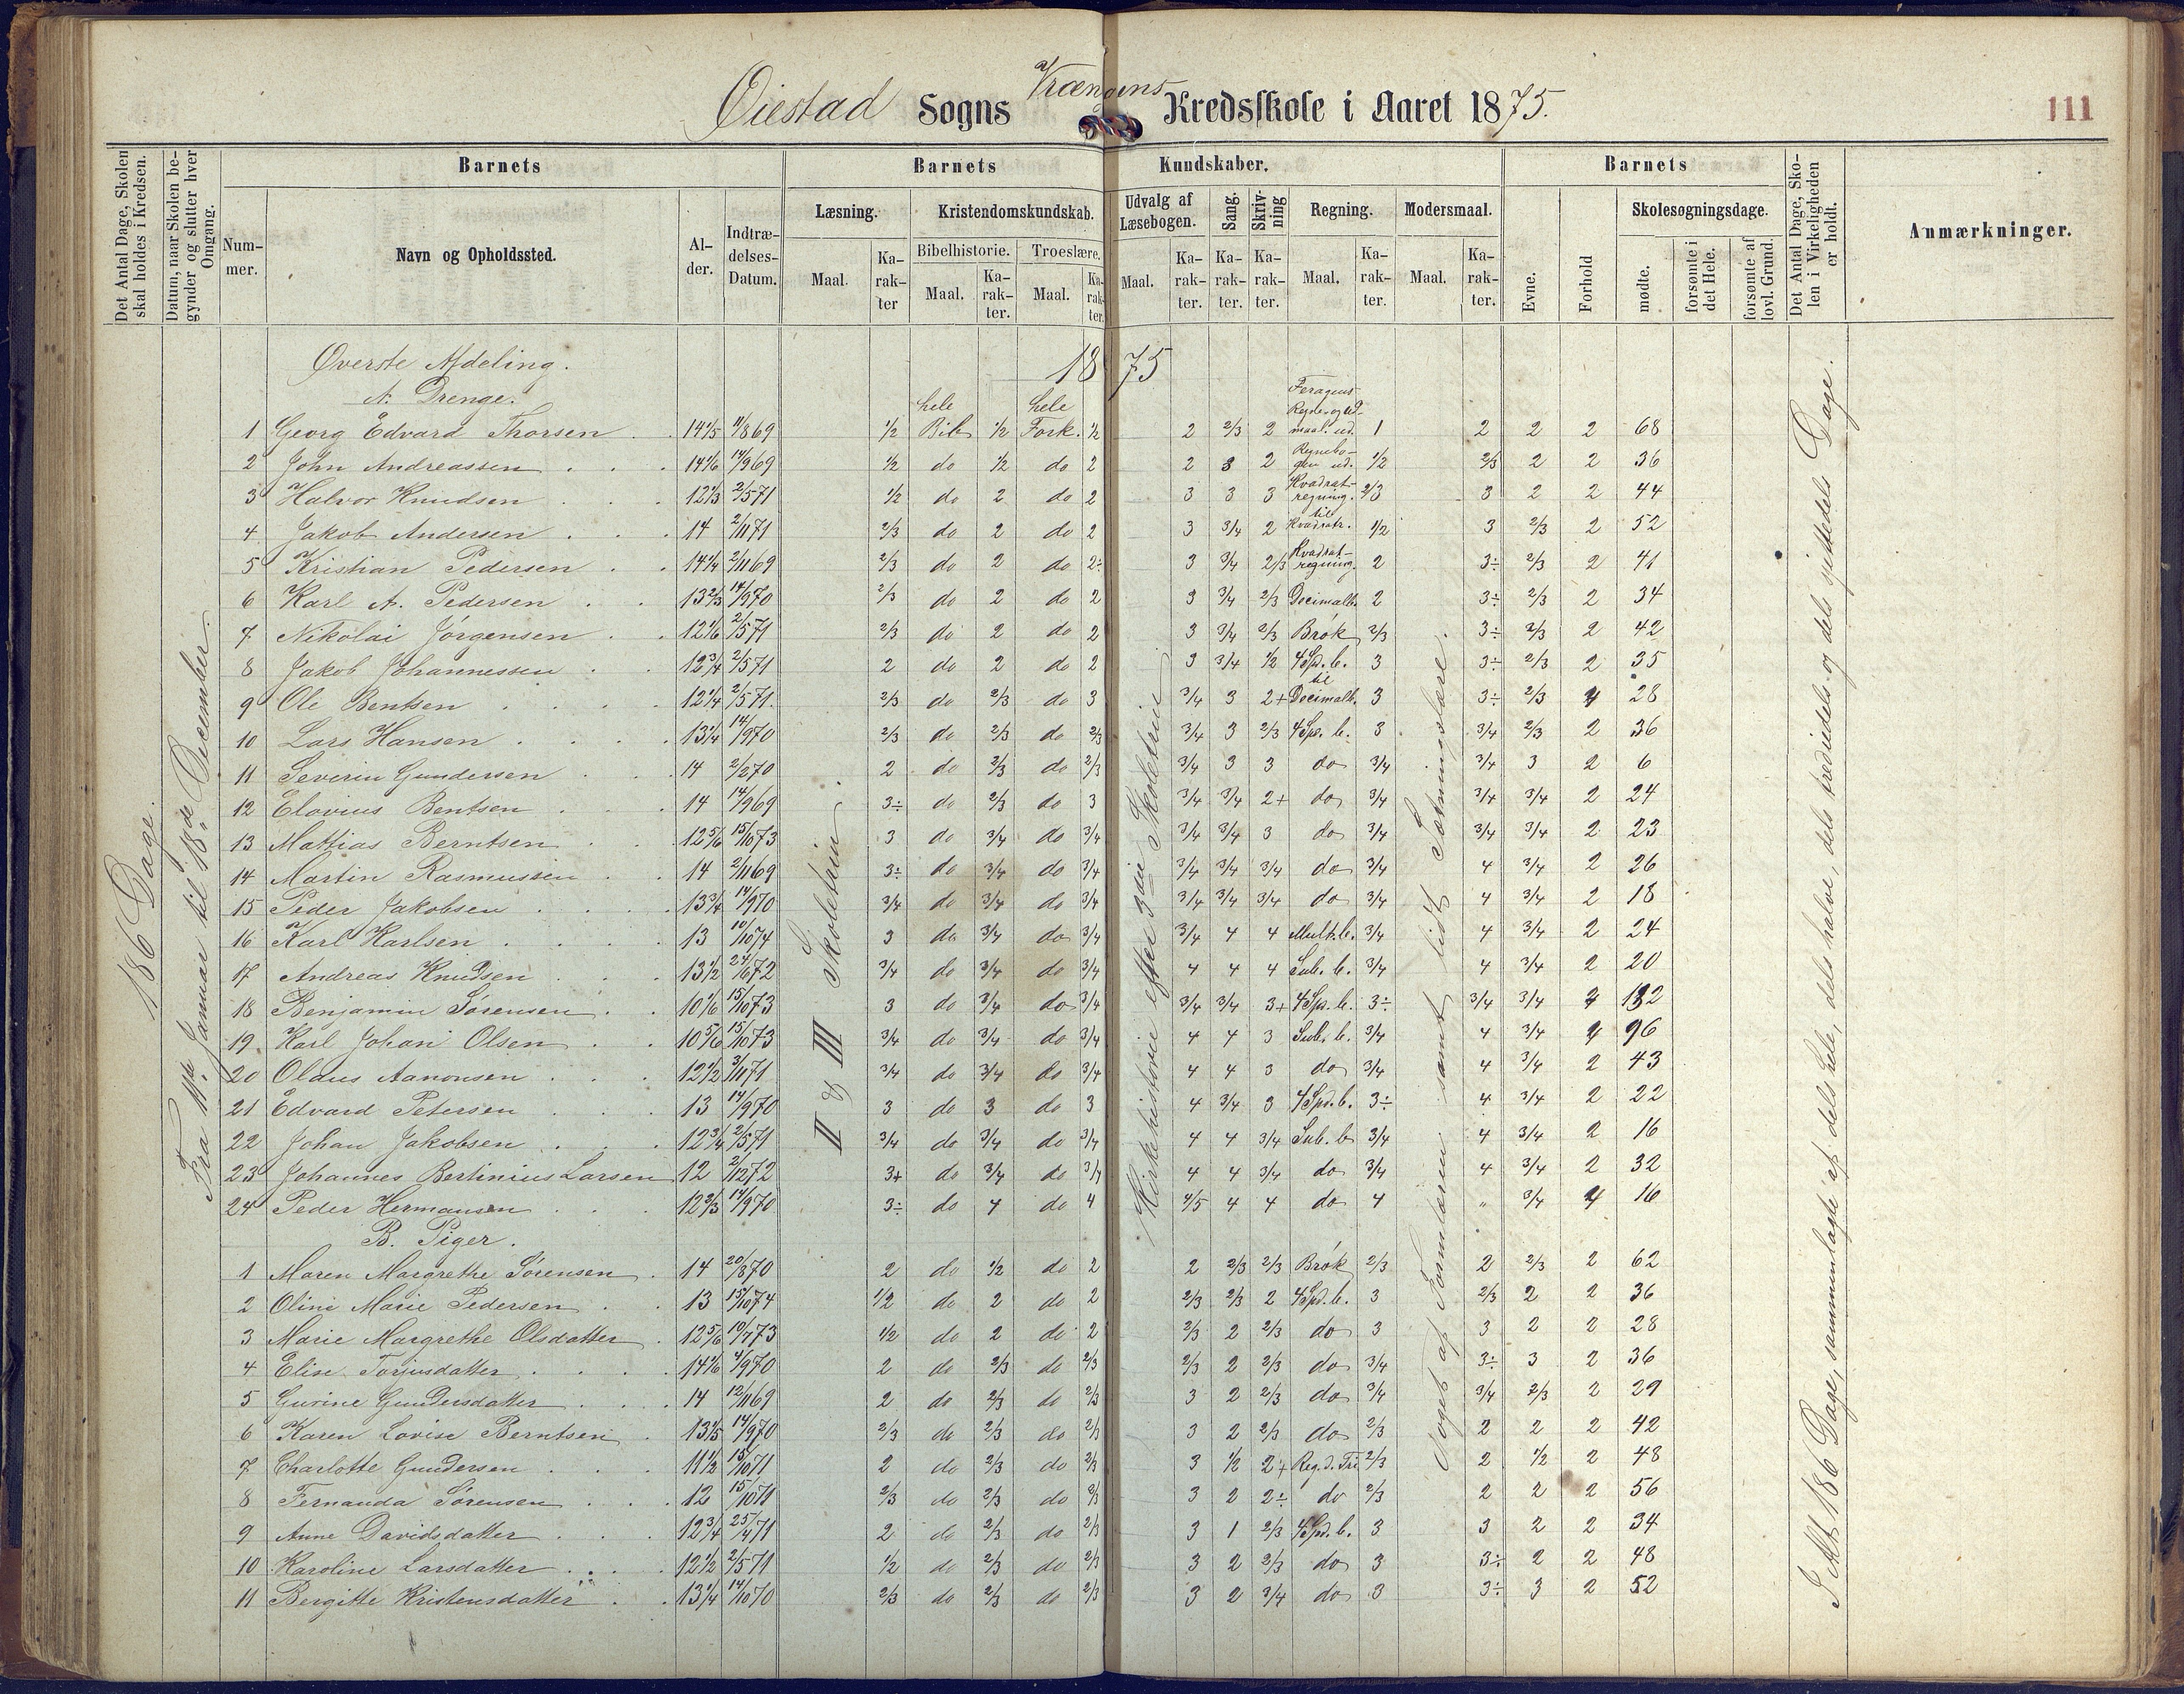 Øiestad Sogns Vrængens Kredsskole i Aaret 1875.
111
Det Antal Dage, Skolen skal holdes i Kredsen.
Datum, naar Skolen begynder og slutter hver Omgang.
Barnets
Nummer.
Navn og Opholdssted.
Alder.
Indtrædelses-Datum.
Barnets Kundskaber.
Læsning.
Maal.
Karakter
Kristendomskundskab.
Bibelhistorie.
Maal.
Karakter.
Troeslære.
Maal.
Karakter.
Udvalg af Læsebogen.
Maal.
Karakter.
Sang.
Karakter.
Skrivning
Karakter.
Regning.
Maal.
Karakter.
Modersmaal.
Maal.
Karakter.
Barnets
Evne.
Forhold
Skolesøgningsdage.
mødte.
forsømte i det Hele.
forsømte af lovl. Grund.
Det Antal Dage, Skolen i Virkeligheden er holdt.
Anmærkninger.
186 Dage.
Fra 11te Januar til 18de December.
II & III Skoletrin.
Kirkehistorie efter 3die Skoletrin
Noget af Formlæren samt lidt Sætningslære.
I Alt 186 Dage, sammenlagte af dels hele, dels halve, dels trediedels og dels sjettedels Dage.
Øverste Afdeling. 1875
A. Drenge.
1 Georg Edvard Thorsen 14 1/5 11/8 69 1/2 hele Bib. 1/2 hele Fork. 1/2 2 2/3 2 1 2 2 2 68
2 John Andreassen 14 1/6 14/9 69 1/2 do 1/2 do 2 2 3 2 Regnebogen ud. 1/2 2/3 2 2 36
3 Halvor Knudsen 12 1/3 2/5 71 1/2 do 2 do 2 3 3 3 Kvadratregning. 2/3 3 2 2 44
4 Jakob Andersen 14 2/11 71 2/3 do 2 do 2 3 3/4 2 til Kvadratr. 1/2 3 2/3 2 52
5 Kristian Pedersen 14 1/4 2/11 69 2/3 do 2 do 2÷ 3 3/4 2/3 Kvadratregning. 2 3÷ 2/3 2 41
6 Karl A. Pedersen 13 2/3 14/9 70 2/3 do 2 do 2 3 3/4 2/3 Decimalb. 2 3÷ 2/3 2 34
7 Nikolai Jörgensen 12 1/6 2/5 71 2/3 do 2 do 2 3 3/4 2/3 Brök 2/3 3÷ 2/3 2 42
8 Jakob Johannessen 12 3/4 2/5 71 2 do 2 do 2 3 3/4 1/2 4 Sp. b. 3 3÷ 2/3 2 35
9 Ole Bentsen 12 1/4 2/5 71. 2/3 do 2/3 do 3 3/4 3 2+ til Decimalb. 3 3÷ 2/3 2 28
10 Lars Hansen 13 1/4 14/9 70 2/3 do 2/3 do 2/3 3/4 3 2/3 4 Sp. b. 3 3/4 2/3 2 36
11 Severin Gundersen 14 2/2 70 2 do 2/3 do 2/3 3/4 3 3 do 3/4 3/4 3 2 6
12 Elovius Bentsen 14 14/9 69 3÷ do 2/3 do 3 3/4 3/4 2+ do 3/4 3/4 3/4 2 24
13 Mattias Berntsen 12 5/6 15/10 73 3 do 3/4 do 3/4 3/4 3/4 3 do 3/4 3/4 3/4 2 23
14 Martin Rasmussen 14 2/11 69 3÷ do 3/4 do 3/4 3/4 3/4 3/4 do 3/4 4 3/4 2 26
15 Peder Jakobsen 13 3/4 14/9 70 3/4 do 3/4 do 3/4 3/4 3/4 3/4 do 3/4 4 3/4 2 18
16 Karl Karlsen 13 10/10 74 3 do 3/4 do 3/4 3/4 4 4 Mult. b. 3/4 4 3/4 2 24
17 Andreas Knudsen 13 1/2 24/6 72 3/4 do 3/4 do 3/4 4 4 4 Sub. b. 3/4 4 3/4 2 20
18 Benjamin Sörensen 10 1/6 15/10 73 3 do 3/4 do 3/4 3/4 3/4 3+ 4 Sp. b. 3÷ 3/4 3/4 2 132
19 Karl Johan Olsen 10 5/6 15/10 73 3/4 do 3/4 do 3/4 4 4 3 Sub. b. 3/4 4 3/4 2 96
20 Olaus Aanonsen 12 1/2 3/11 71 3/4 do 3/4 do 3/4 4 4 3 do 3/4 4 3/4 2 43
21 Edvard Petersen 13 14/9 70 3 do 3 do 3 4 3/4 3 4 Spd. b. 3÷ 4 3/4 2 22
22 Johan Jakobsen 12 3/4 2/5 71 3/4 do 3/4 do 3/4 4 4 3/4 Sub. b 3/4 4 3/4 2 16
23 Johannes Bertinius Larsen 12 2/12 72 3+ do 3/4 do 3/4 4 4 3/4 do 3/4 4 3/4 2 32
24 Peder Hermansen 12 2/3 14/9 70 3÷ do 4 do 4 4/5 4 4 do 4 „ 3/4 2 16
B. Piger.
1 Maren Margrethe Sörensen 14 20/8 70 2 do 1/2 do 2 2 2/3 2/3 Brök 2/3 2 2/3 2 62
2 Oline Marie Pedersen 13 15/10 74 1/2 do 2 do 2 2/3 2/3 2 4 Spd. b. 3 2/3 2 2 36
3 Marie Margrethe Olsdatter 12 5/6 10/7 73 1/2 do 2 do 2 2/3 2 2/3 do 3 3 2 2 28
4 Elise Torjusdatter 14 1/6 4/9 70 2 do 2/3 do 2/3 2/3 2 2/3 do 3/4 3÷ 3 2 36
5 Gurine Gundersdatter 14 12/11 69 2 do 2/3 do 2/3 3 2 2/3 do 3/4 3/4 2/3 2 29
6 Karen Lovise Berntsen 13 1/5 14/9 70 2/3 do 2/3 do 2/3 3 2 2/3 do 2/3 2 2 2 42
7 Charlotte Gundersen 11 1/2 15/10 71 2 do 2/3 do 2/3 3 1/2 2+ Reg. d. Tri 2/3 2 1/2 2 48
8 Fernanda Sörensen 12 15/10 71 2/3 do 2/3 do 2/3 3 2 2÷ do 2/3 2 2 2 56
9 Anne Davidsdatter 12 3/4 25/4 71 2 do 2/3 do 2/3 3 1 2/3 4 Spd. b. 3 3 2 2 34
10 Karoline Larsdatter 12 1/2 2/5 71 1/2 do 2/3 do 2/3 3 2 2/3 do 3 3÷ 2 2 48
11 Bergitte Kristensdatter 13 1/4 14/10 70 2/3 do 2/3 do 2/3 3 2 3/4 do 3 3÷ 3 2 52